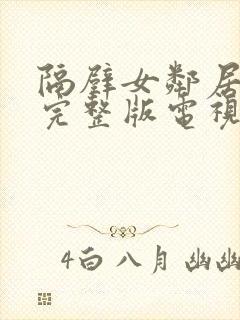 隔壁女鄰居
完整版電視
4白 八月 幽幽